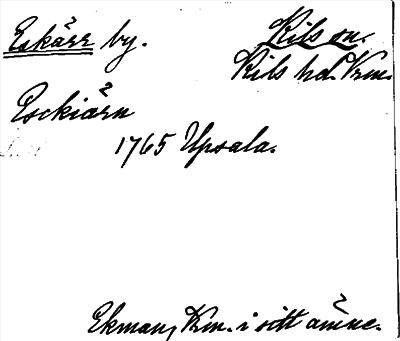 Eskärr by. Kils sn.
Kils hd. Vrm.
Esckiärn
1765 Upsala.
Ekman, Vrm. i sitt ämne.